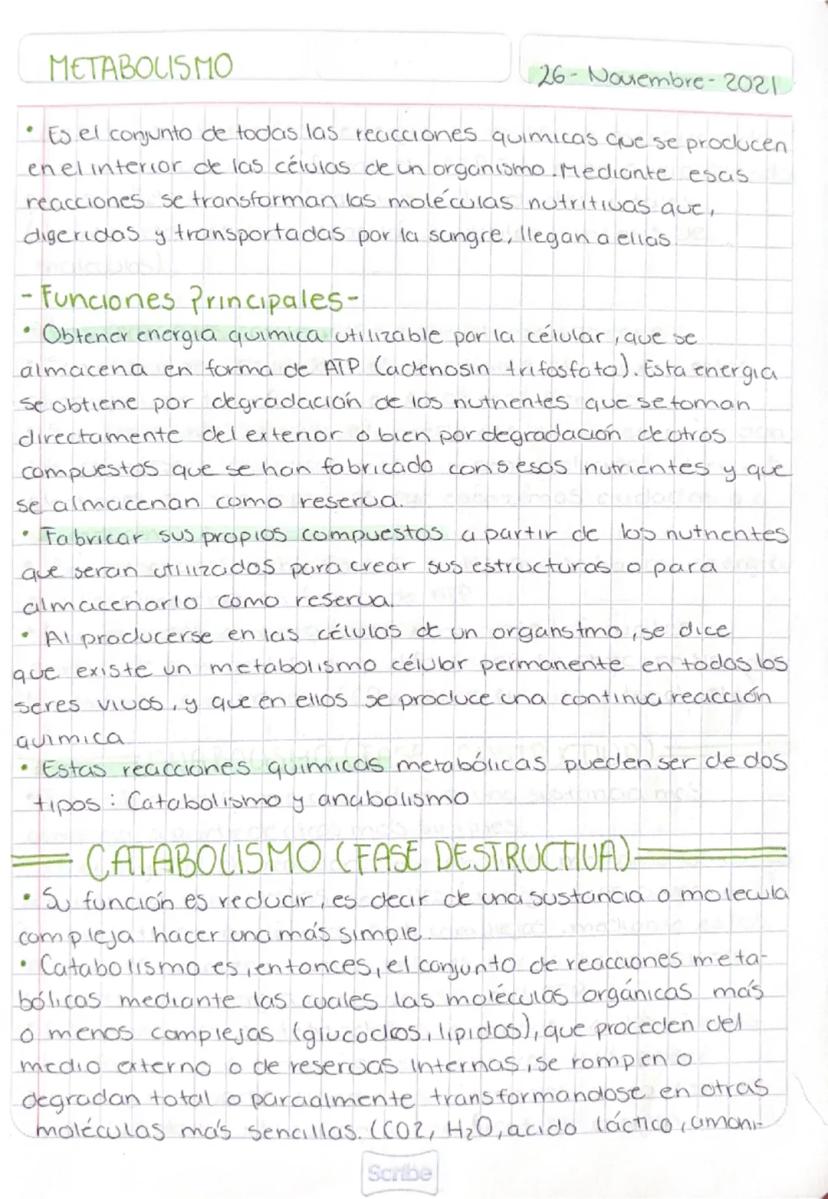 METABOLISMO
26-Noviembre-2021
• Es el conjunto de todas las reacciones quimicas que se producen
en el interior de las células de un organismo. Mediante esas
reacciones se transforman las moléculas nutritivas que,
digeridas y transportadas por la sangre, llegan a ellas
-Funciones Principales-
• Obtener energia quimica utilizable por la célular, que se
almacena en forma de ATP (adenosin trifosfato). Esta energia
se obtiene por degradación de los nutrientes que se toman
directamente del exterior o bien por degradación de otros
compuestos que se han fabricado cons esos nutrientes y que
se almacenan como reserva.
• Fabricar sus propios compuestos a partir de los nutrientes
que seran utilizados para crear sus estructuras o para
almacenarlo como reserva.
• Al producerse en las células de un organstmo, se dice
que existe un metabolismo célular permanente en todos los
seres vivos, y que en ellos se produce una continua reacción
quimica
• Estas reacciones quimicas metabólicas pueden ser de dos
tipos: Catabolismo y anabolismo
CATABOLISMO (FASE DESTRUCTIVA)
• Su función es reducir, es decir de una sustancia o molecula
compleja hacer una más simple.
• Catabolismo es, entonces, el conjunto de reacciones meta-
bólicas mediante las cuales las moléculas orgánicas más
o menos complejas (glucidos, lipidos), que proceden del
medio externo o de reservas internas, se rompen o
degradan total o parcialmente transformandose en otras
moléculas más sencillas. (CO2, H2O, acido láctico, amoni-
Scribe